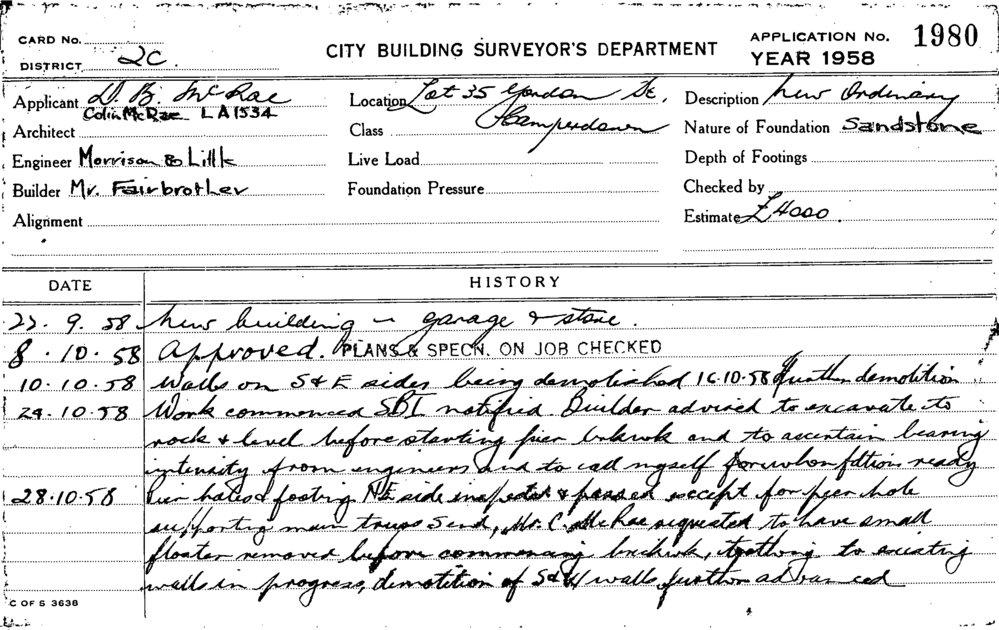 CARD No.
DISTRICT 2C.
CITY BUILDING SURVEYOR'S DEPARTMENT
APPLICATION No. 1980
YEAR 1958
Applicant D. B. McRae
Colin McRae LA1534
Location Lot 35 Gordon St,
Camperdown
Description New Ordinary
Architect
Class
Nature of Foundation Sandstone
Engineer Morrison & Little
Live Load
Depth of Footings
Builder Mr. Fairbrother
Foundation Pressure
Checked by
Alignment
Estimate £4000.
DATE HISTORY
9.58 New building - garage & store.
8.10.58 Approved. PLANS & SPECN. ON JOB CHECKED
10.10.58 Walls on S & E sides being demolished 16.10.58 further demolition
24.10.58 Work commenced SBI notified. Builder advised to excavate to
rock & level before starting pier brkwk and to ascertain bearing
intensity from engineers and to call myself for when fdtions ready
28.10.58 Pier holes & footing side inspected & passed except for pier hole
supporting main truss send, Mr. C. McRae requested to have small
floater removed before commencing brickwk, toothing to existing
walls in progress, demolition of S & W walls further advanced
C OF S 3638